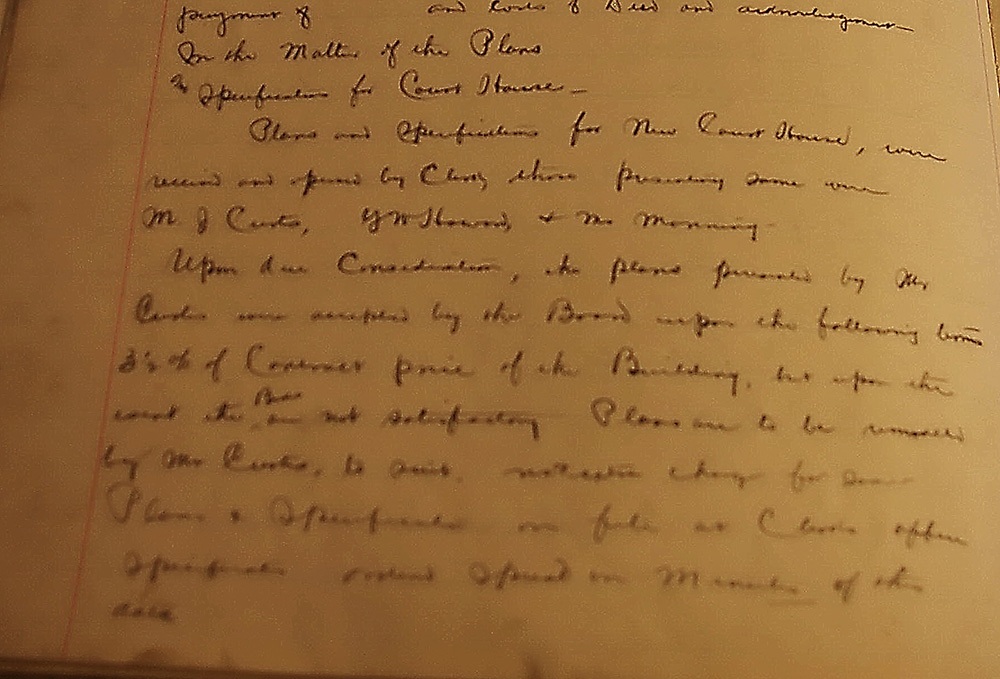 payment of and Costs of Deed and acknowledgment
In the Matter of the Plans
& Specifications for Court House —
Plans and Specifications for New Court House, were
received and opened by Clerk, those presenting same were
M J Curtis, G W Howard, & Mr Manning
Upon due Consideration, the plans presented by Mr
Curtis were accepted by the Board upon the following terms
3½ % of Contract price of the Building, but upon the
event the Bids are not satisfactory Plans are to be remodeled
by Mr Curtis, to suit, without extra charge for same
Plans & Specifications on file at Clerks office
Specifications ordered Spread on Minutes of this
date